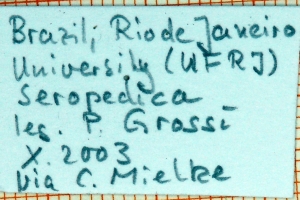 Brazil; Rio de Janeiro
University (UFRJ)
Seropedica
leg. P. Grossi
X. 2003
Via C. Mielke